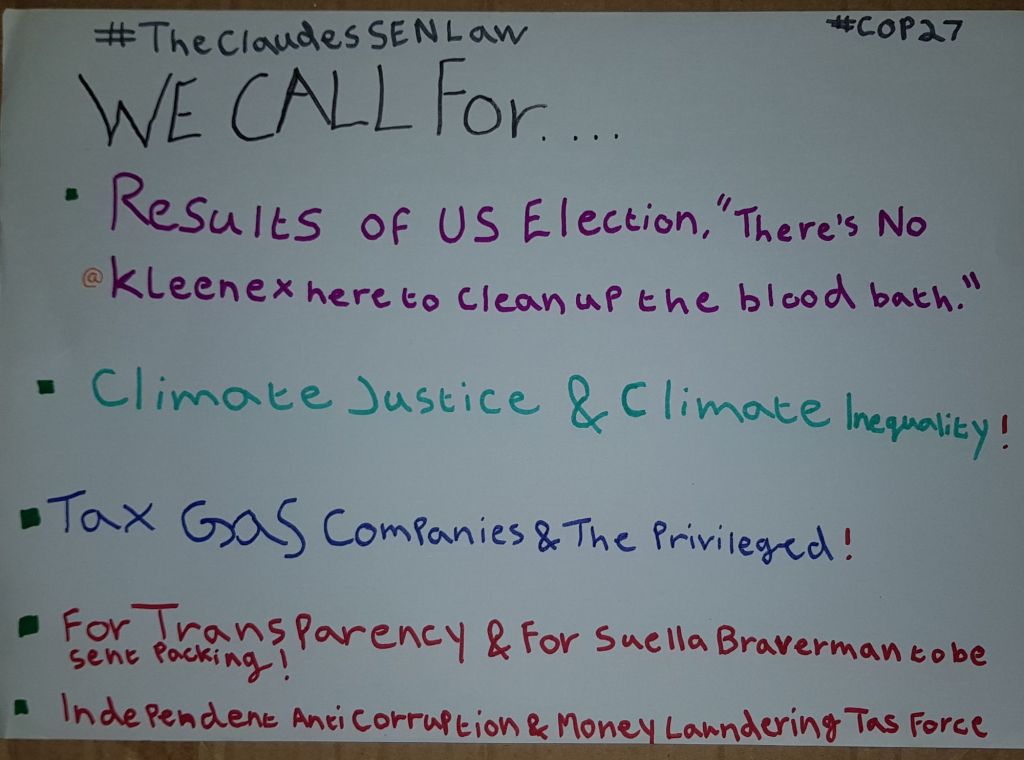 #TheClaudesSENLaw #COP27
WE CALL For....
Results of US Election, "There's No
@Kleenex here to clean up the blood bath."
Climate Justice & Climate Inequality!
Tax Gas Companies & The Privileged!
For Transparency & For Suella Braverman to be
sent packing!
Independent Anti Corruption & Money Laundering Tas Force